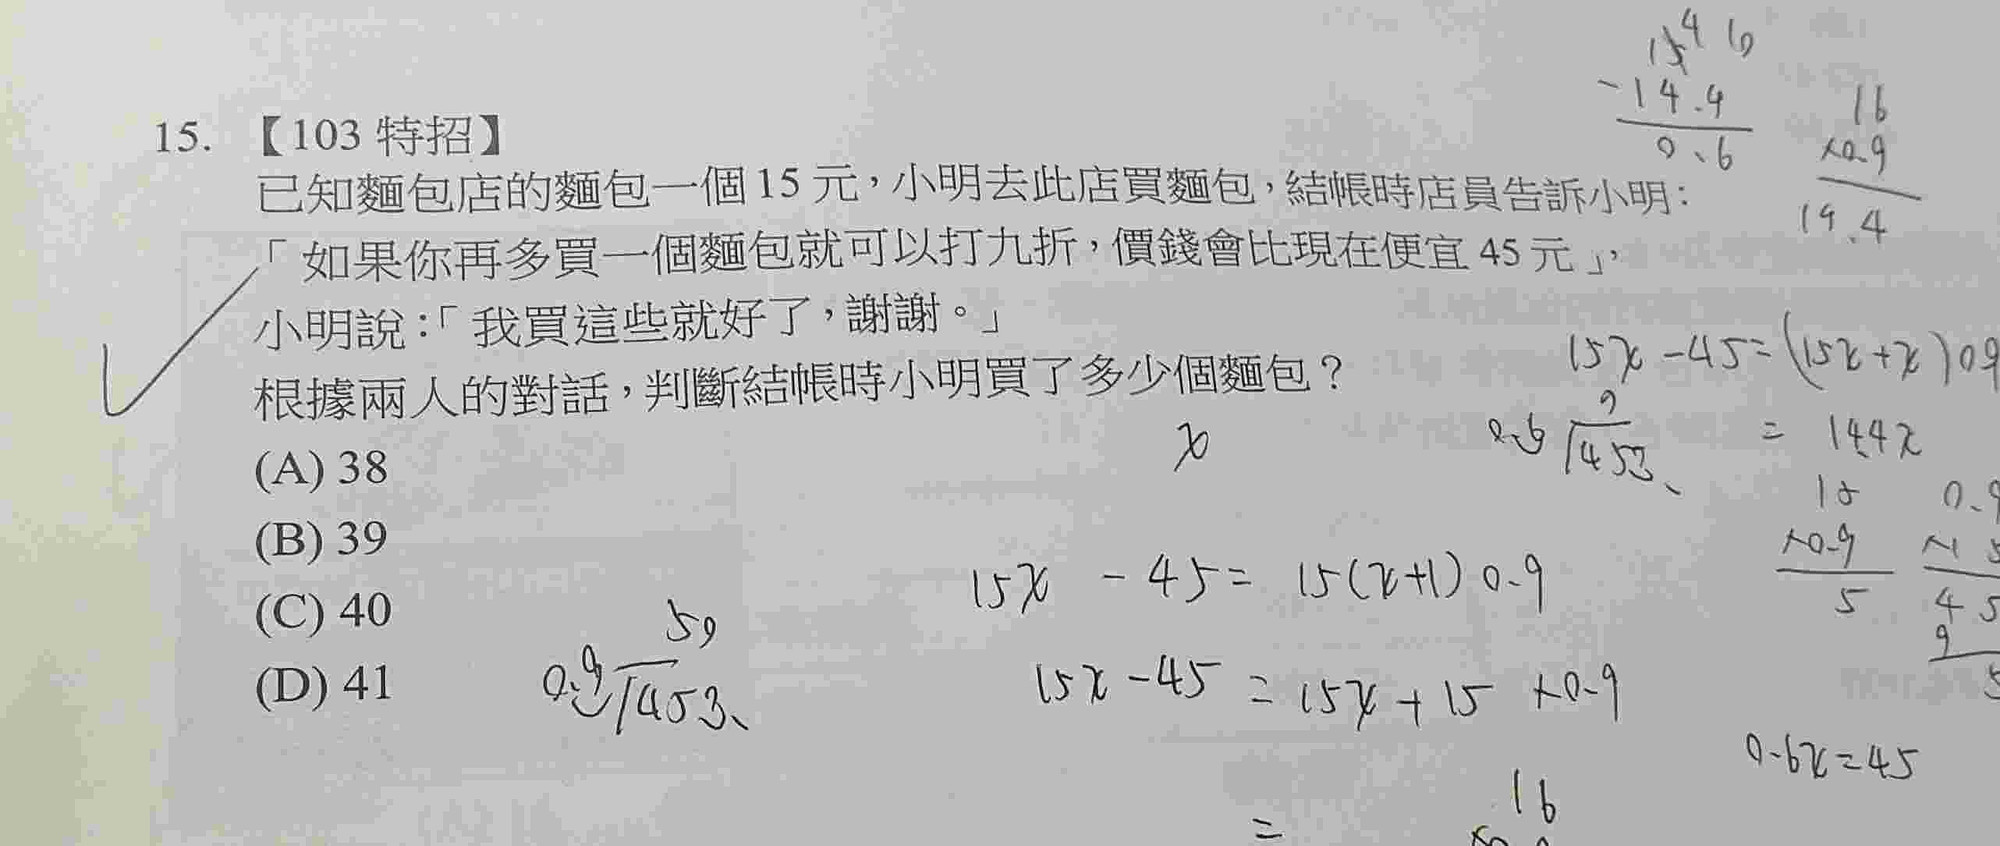 15. 【103 特招】
已知麵包店的麵包一個 15 元，小明去此店買麵包，結帳時店員告訴小明：
「如果你再多買一個麵包就可以打九折，價錢會比現在便宜 45 元」，
小明說：「我買這些就好了，謝謝。」
根據兩人的對話，判斷結帳時小明買了多少個麵包？
(A) 38
(B) 39
(C) 40
(D) 41
x
15x - 45 = 15(x+1) 0.9
15x - 45 = 15x + 15 × 0.9
=
16
59
0.9 453
-14.4
0.6
16
×0.9
15x - 45 = (15x + x) 0.9
= 14.4x
9
453
×0.9
5
0.9
45
9
0.6x = 45